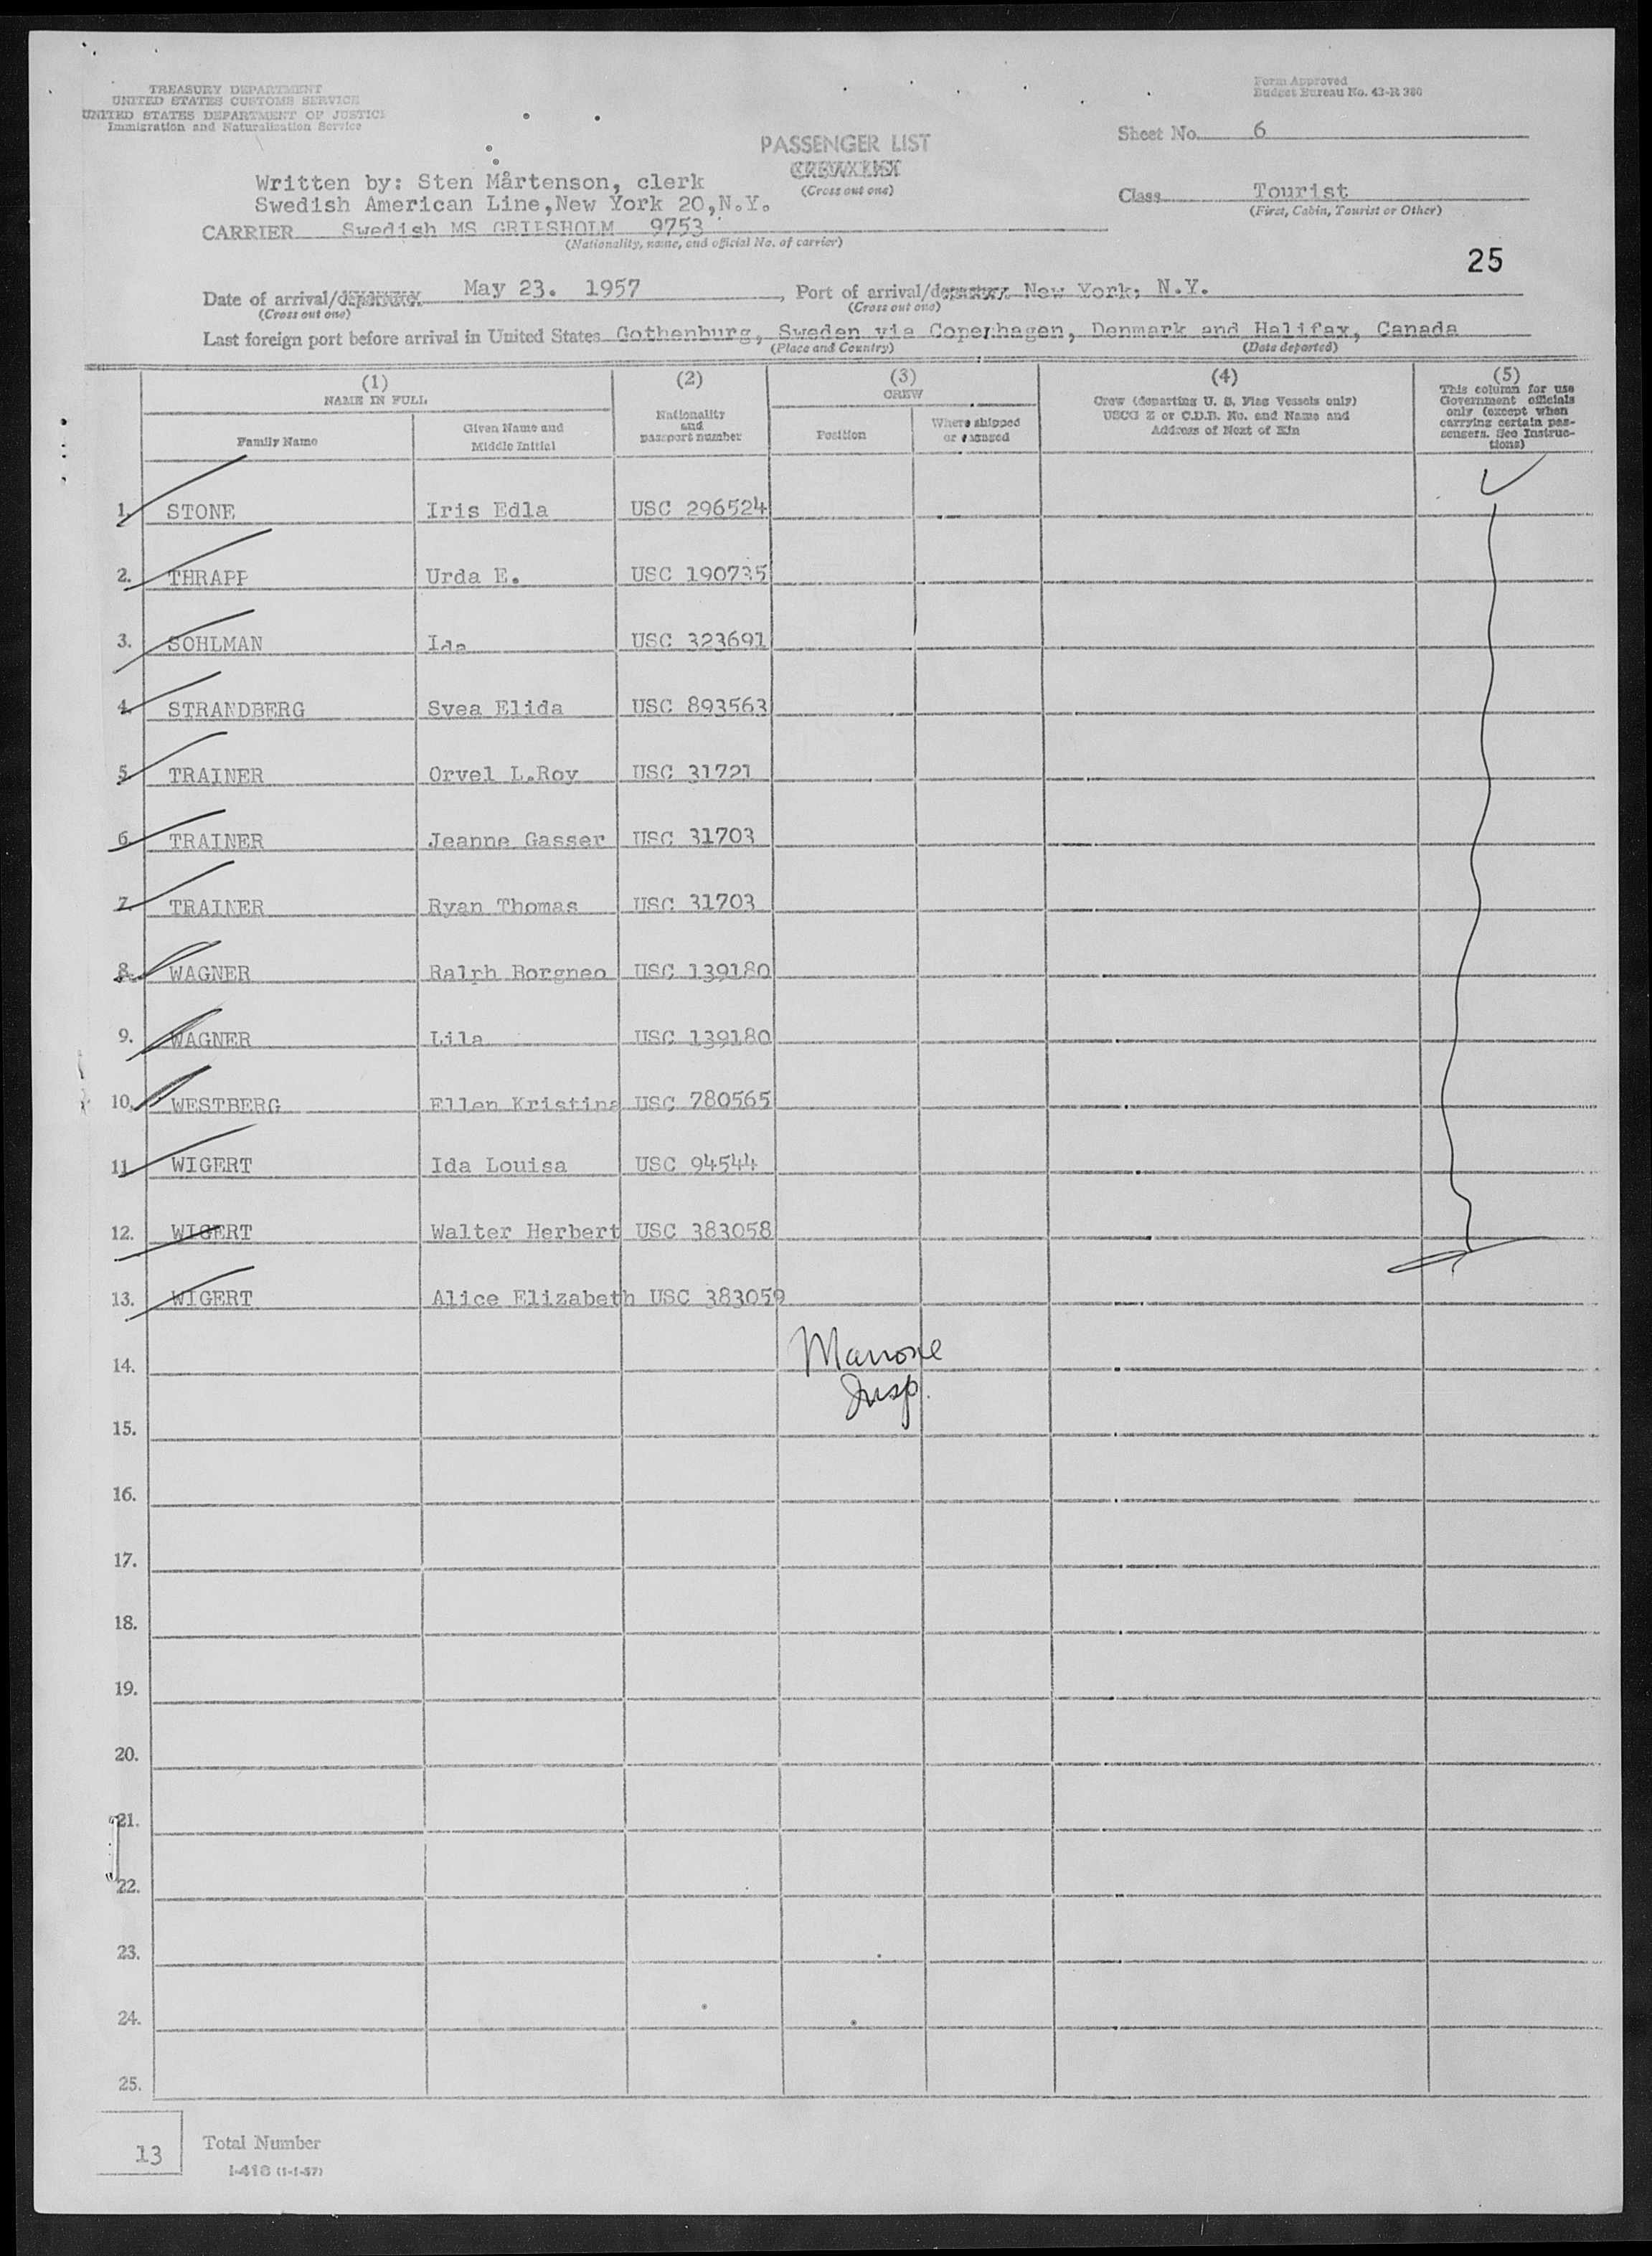 TREASURY DEPARTMENT
UNITED STATES CUSTOMS SERVICE
UNITED STATES DEPARTMENT OF JUSTICE
Immigration and Naturalization Service
Form Approved
Budget Bureau No. 43-R 380
PASSENGER LIST
CREW LIST
(Cross out one)
Sheet No. 6
Written by: Sten Mårtenson, clerk
Swedish American Line, New York 20, N.Y.
Class Tourist
(First, Cabin, Tourist or Other)
CARRIER Swedish MS GRIPSHOLM 9753
(Nationality, name, and official No. of carrier)
25
Date of arrival/departure May 23. 1957, Port of arrival/departure New York, N.Y.
(Cross out one) (Cross out one)
Last foreign port before arrival in United States Gothenburg, Sweden via Copenhagen, Denmark and Halifax, Canada
(Place and Country) (Date departed)
(1) NAME IN FULL
Family Name
Given Name and Middle Initial
(2) Nationality and passport number
(3) CREW
Position
Where shipped or engaged
(4) Crew (departing U. S. Flag Vessels only) USCG Z or C.D.B. No. and Name and Address of Next of Kin
(5) This column for use Government officials only (except when carrying certain passengers. See Instructions)
1. STONE Iris Edla USC 296524
2. THRAPP Urda E. USC 190735
3. SOHLMAN Ida USC 323691
4. STRANDBERG Svea Elida USC 893563
5. TRAINER Orvel L.Roy USC 31721
6. TRAINER Jeanne Gasser USC 31703
7. TRAINER Ryan Thomas USC 31703
8. WAGNER Ralph Borgneo USC 139180
9. WAGNER Lila USC 139180
10. WESTBERG Ellen Kristina USC 780565
11. WIGERT Ida Louisa USC 94544
12. WIGERT Walter Herbert USC 383058
13. WIGERT Alice Elizabeth USC 383059
14. Marrone
Insp.
15.
16.
17.
18.
19.
20.
21.
22.
23.
24.
25.
13 Total Number
I-418 (1-1-57)